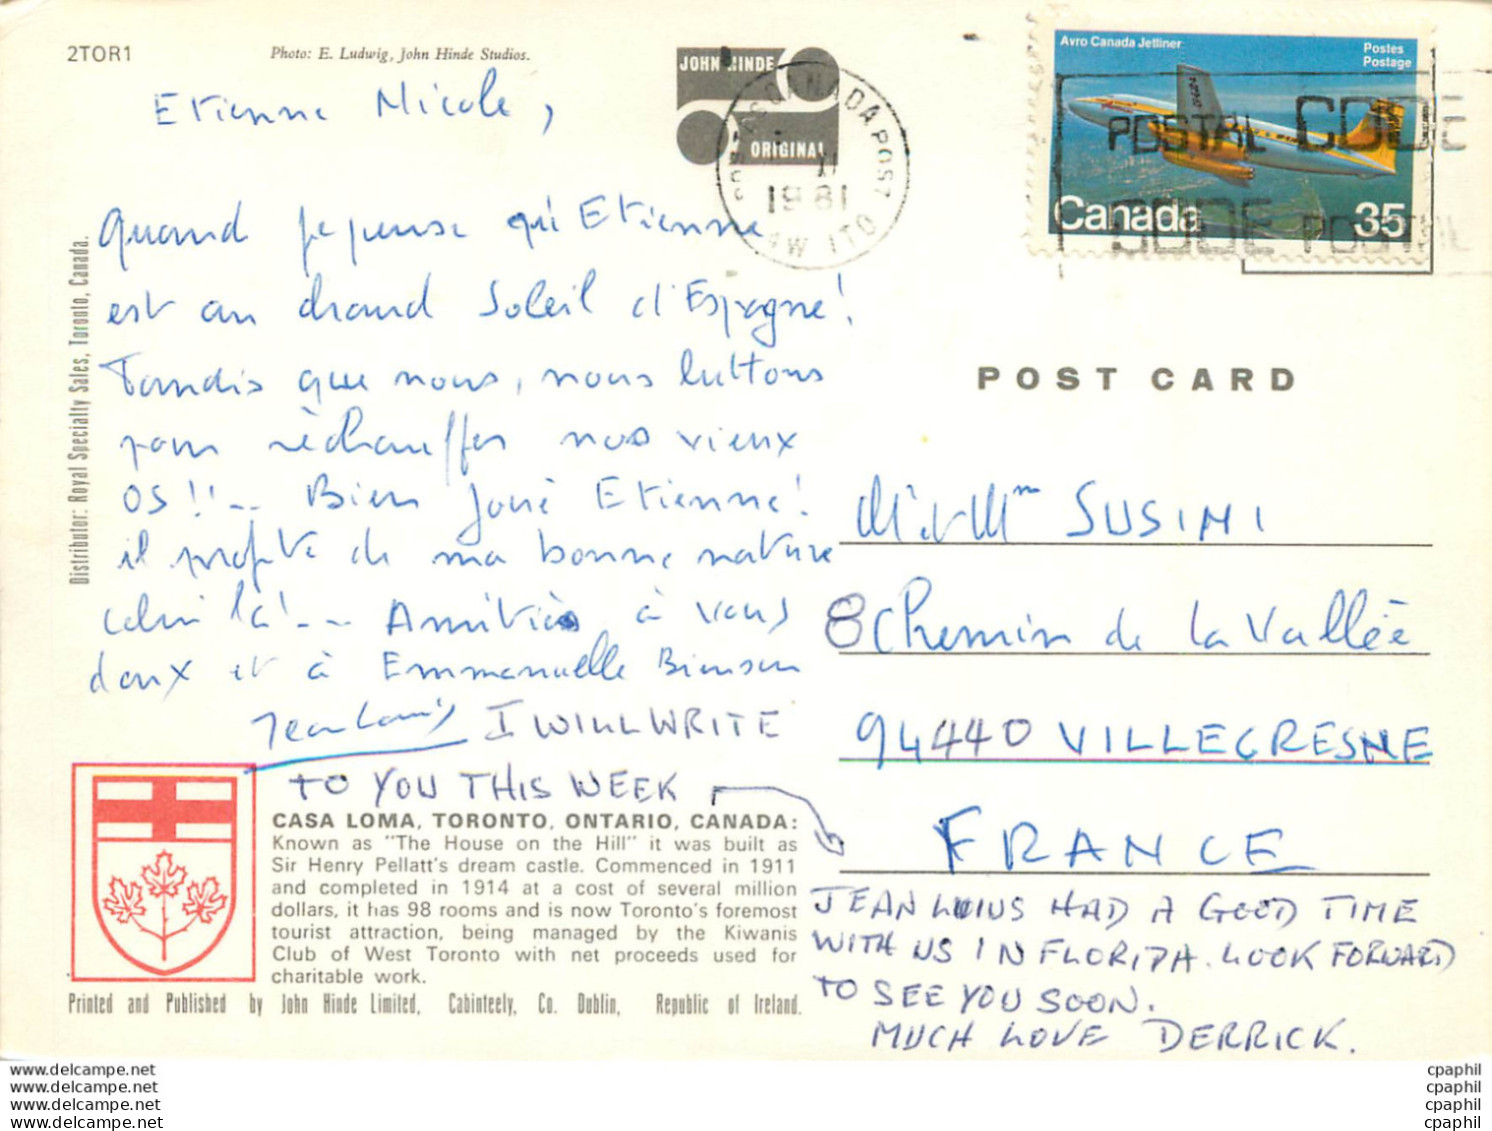 2TOR1
Photo: E. Ludwig, John Hinde Studios.
JOHN HINDE
ORIGINAL
CANADA POST
1981
Avro Canada Jetliner
Postes
Postage
POSTAL CODE
CODE POSTAL
Canada 35
Etienne Nicole,
Quand je pense qu'Etienne
est au chaud soleil d'Espagne!
Tandis que nous, nous luttons
pour réchauffer nos vieux
os!!... Bien joué Etienne!
il profite de ma bonne nature
celui là!... Amitiés à vous
deux et à Emmanuelle
Jean Louis I WILL WRITE
TO YOU THIS WEEK
Distributor: Royal Specialty Sales, Toronto, Canada.
CASA LOMA, TORONTO, ONTARIO, CANADA:
Known as "The House on the Hill" it was built as
Sir Henry Pellatt's dream castle. Commenced in 1911
and completed in 1914 at a cost of several million
dollars, it has 98 rooms and is now Toronto's foremost
tourist attraction, being managed by the Kiwanis
Club of West Toronto with net proceeds used for
charitable work.
Printed and Published by John Hinde Limited, Cabinteely, Co. Dublin, Republic of Ireland.
POST CARD
Mr et Mme SUSINI
8 Chemin de la Vallée
94440 VILLECRESNE
FRANCE
JEAN LOUIS HAD A GOOD TIME
WITH US IN FLORIDA. LOOK FORWARD
TO SEE YOU SOON.
MUCH LOVE DERRICK.
www.delcampe.net
www.delcampe.net
www.delcampe.net
www.delcampe.net
cpaphil
cpaphil
cpaphil
cpaphil